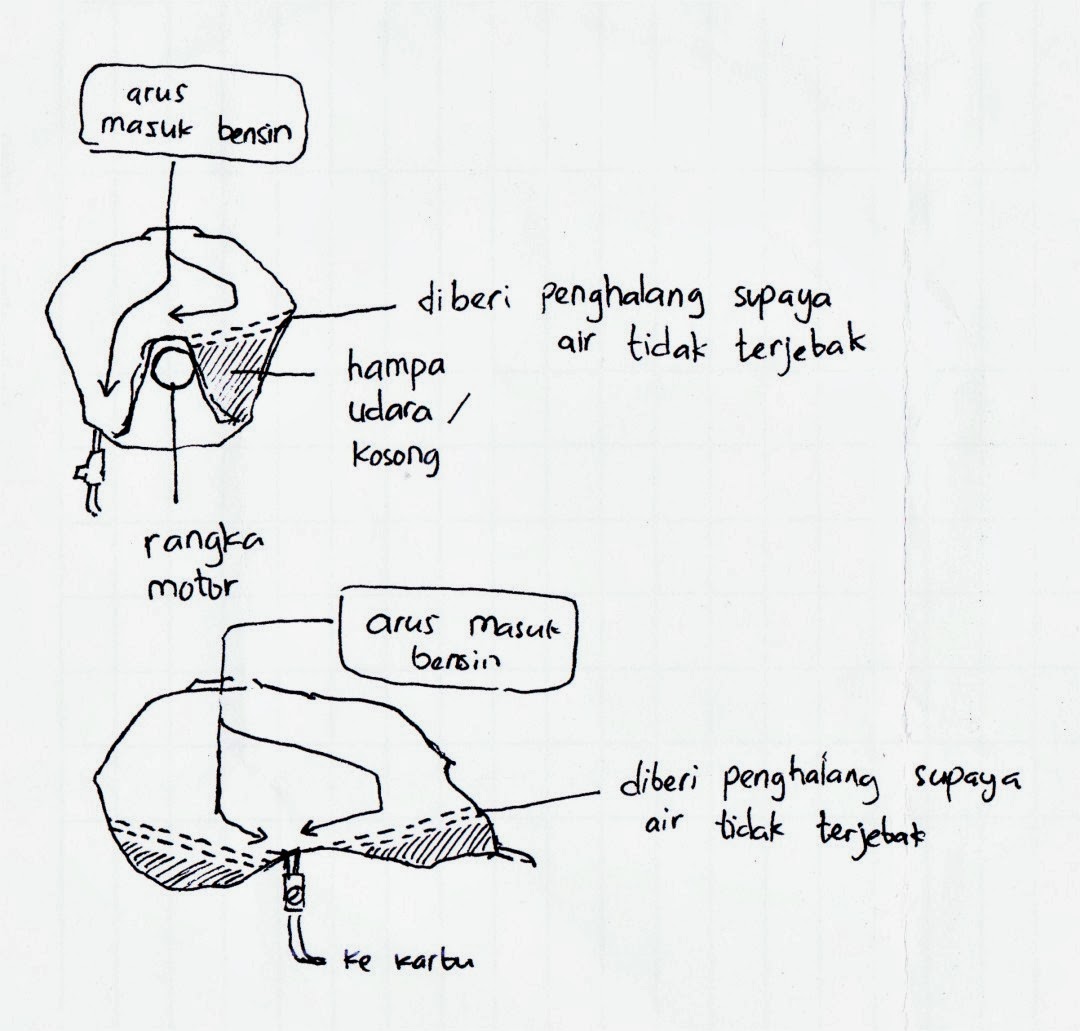 arus
masuk bensin
diberi penghalang supaya
air tidak terjebak
hampa
udara /
kosong
rangka
motor
arus masuk
bensin
diberi penghalang supaya
air tidak terjebak
ke karbu